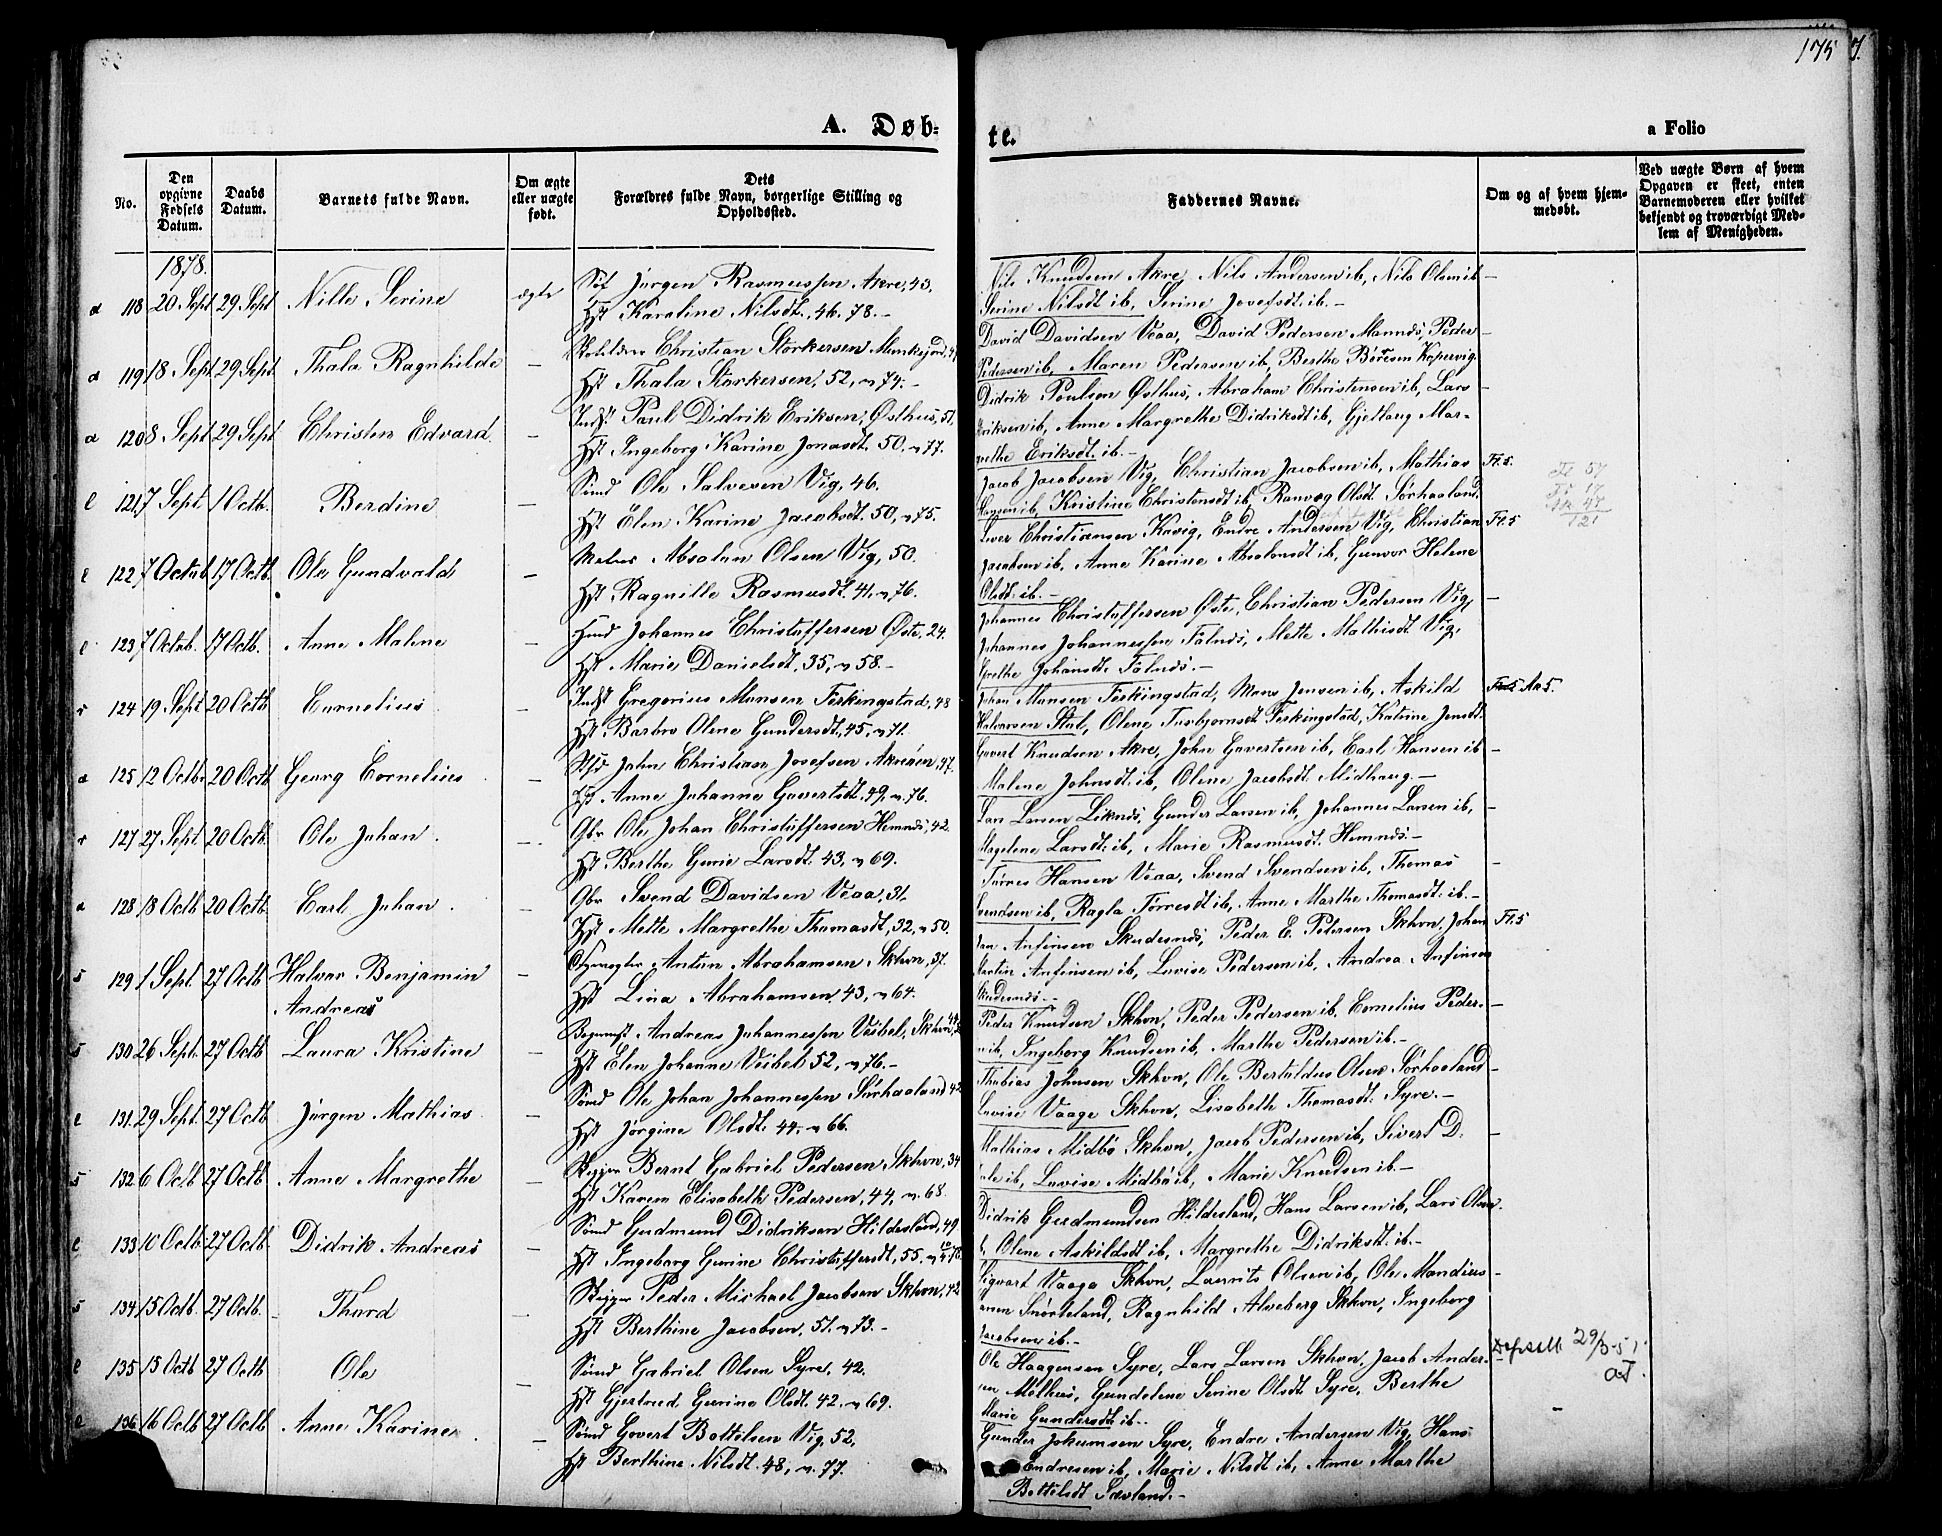 175
7.
A. Døb-
te.
a Folio
No.
Den opgivne Fødsels Datum.
Daabs Datum.
Barnets fulde Navn.
Om ægte eller uægte født.
Dets Forældres fulde Navn, borgerlige Stilling og Opholdssted.
Faddernes Navne.
Om og af hvem hjemmedøbt.
Ved uægte Børn af hvem Opgaven er skeet, enten Barnemoderen eller hvilket bekjendt og troværdigt Medlem af Menigheden.
1878.
a 118 20 Sept 29 Sept Nille Serine ægte Jørgen Rasmussen Akre, 43.
Hst Karoline Nilsdt., 46. 78.-
Nils Knudsen Akre, Nils Andersen ib, Nils Olsen ib -
Serine Nilsdt ib, Serine Josefsdt. ib.-
a 119 18 Sept 29 Sept Thala Ragnhilde - Christian Storkersen Munkejord,
Hst Thala Storkersen, 52, n 74.-
David Davidsen Veaa, David Pedersen Mannes, Peder -
Pedersen ib, Maren Pedersen ib, Berthe Børesen Kopervig.
a 120 8 Sept 29 Sept Christen Edvard. - Indst Paul Didrik Eriksen, Østhus, 51,
Hst Ingeborg Karine Jonasdt. 50, n 77.
Didrik Poulsen Østhus, Abraham Christensen ib, Lars -
Eriksen ib, Anne Margrethe Didriksdt ib, Gjetlaug Mar-
grethe Eriksdt. ib.-
e 121 7 Sept 1 Octb. Berdine - Sømd Ole Salvesen Vig, 46.
Hst Elen Karine Jacobsdt. 50, n 75.
Jacob Jacobsen Vig, Christian Jacobsen ib, Mathias Ft. 5.
Hansen ib, Kristine Christensdt ib, Ranveg Olsdt. Sørhaaland.
e 122 7 Octob 17 Octb. Ole Gundvald - Absalon Olsen Vig, 50.
Hst Ragnille Rasmusdt. 41, n 76.
Iver Christiansen Kavig, Endre Andersen Vig, Christian Ft. 5
Jacobsen ib, Anne Karine Absalonsdt ib, Gunvor Helene
Olsdt. ib.-
e 123 7 Octob. 17 Octb. Anne Malene - Johannes Christoffersen Øste, 24.
Hst Marie Danielsdt, 35, n 58.-
Johannes Christoffersen Øste, Christian Pedersen Vig, -
Johannes Johannessen Falnes, Mette Mathisdt Vig,
Grethe Johansdt. Falnes.-
r 124 19 Sept 20 Octb Cornelius - Indst Gregorius Monsen Ferkingstad, 48
Hst Barbro Olene Gundersdt, 45, n 71.
Johan Monsen Ferkingstad, Mons Jensen ib, Askild
Halvorsen Stol, Olene Torbjørnsdt Ferkingstad, Katrine Jensdt.
a 125 12 Octbr 20 Octb Georg Cornelius - John Christian Josefsen Akreøen, 47.
Hst Anne Johanne Govertsdt. 49, n. 76.
Govert Knudsen Akre, John Govertsen ib, Carl Hansen ib -
Malene Johnsdt. ib, Olene Jacobsdt. Midhaug.-
r 127 27 Sept. 20 Octb. Ole Johan. - Gbr Ole Johan Christoffersen Hemnes, 42.
Hst Berthe Gurie Larsdt. 43, n 69.
Lars Larsen Liknes, Gunder Larsen ib, Johannes Larsen ib, -
Magelene Larsdt. ib, Marie Rasmusdt. Hemnes.-
a 128 18 Octb 20 Octb Carl Johan. - Gbr Svend Davidsen Veaa, 31.
Hst Mette Margrethe Thomasdt, 32, n 50.
Tørres Hansen Veaa, Svend Svendsen ib, Thomas -
Svendsen ib, Ragla Tørresdt ib, Anne Marthe Thomasdt. ib.-
5 129 1 Sept. 27 Octb Halvor Benjamin Andreas - Anton Abrahamsen Skhvn, 37.
Hst Lina Abrahamsen, 43, n 64.
Anfinsen Skudesnes, Peder E. Petersen Skhvn, Johan Ft. 5
Martin Anfinsen ib, Lovise Pedersen ib, Andrea Anfinsen
Skudesnes.-
5 130 26 Sept. 27 Octb Laura Kristine - Andreas Johannessen Veibel, Skhvn,
Hst Elen Johanne Veibel 52, n 76.-
Peder Knudsen Skhvn, Peder Pedersen ib, Cornelius Peder- -
sen ib, Ingeborg Knudsen ib, Marthe Pedersen ib.-
e 131. 29 Sept. 27 Octb Jørgen Mathias - Sømd Ole Johan Johannessen Sørhaaland, 42
Hst Jørgine Olsdt. 44. n 66.
Thobias Johnsen Skhvn, Ole Bertoldus Olsen Sørhaaland -
Lovise Vaage Skhvn, Lisabeth Thomasdt. Syre.-
5 132 6 Octb 27 Octb Anne Margrethe - Skipper Bernt Gabriel Pedersen, Skhvn, 34
Hst Karen Elisabeth Pedersen, 44, n. 68.
Mathias Midbø Skhvn, Jacob Pedersen ib, Sivert D. -
ib, Lovise Midbø ib, Marie Knudsen ib.-
e 133 10 Octb 27 Octb. Didrik Andreas - Sømd Gudmund Didriksen Hildesland, 49
Hst Ingeborg Gurine Christoffersdt, 55. n
Didrik Gudmundsen Hildesland, Hans Larsen ib, Lars Olsen -
ib, Olene Askildsdt ib, Margrethe Didriksdt. ib.-
5 134 15 Octb. 27 Octb. Thord - Skipper Peder Michael Jacobsen Skhvn, 42
Hst Berthine Jacobsen, 51. n 73.-
Sigvart Vaage Skhvn, Laurits Olsen ib, Ole Mandius -
Snørteland, Ragnhild Alveberg Skhvn, Ingeborg
Jacobsen ib.-
e 135 15 Octb 27 Octb Ole - Sømd Gabriel Olsen Syre, 42.
Hst Gjertrud Gurine Olsdt. 42. n 69.
Ole Haagensen Syre, Lars Larsen Skhvn, Jacob Ander- 29/3-51
sen Molhus, Gundelene Serine Olsdt. Syre, Berthe
Marie Gundersdt ib.-
136 16 Octb 27 Octb Anne Karine. - Sømd Govert Bottolsen Vig, 52,
Hst Berthine Nilsdt. 48, n. 77.
Gunder Jokumsen Syre, Endre Andersen Vig, Hans -
Endresen ib, Marie Nilsdt ib, Anne Marthe
Bottolsdt Sævland.-